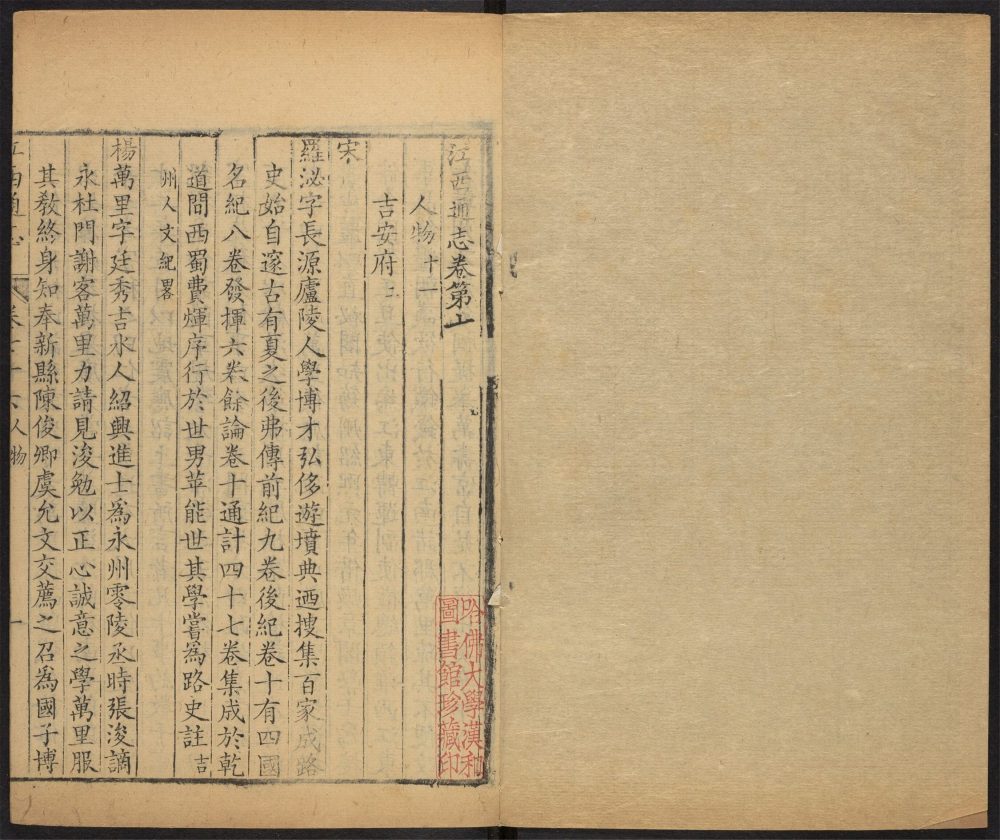 江西通志卷第
人物十一
吉安府二
宋
羅泌字長源廬陵人學博才弘侈遊墳典迺搜集百家成路
史始自邃古有夏之後弗傳前紀九卷後紀卷十有四國
名紀八卷發揮六卷餘論卷十通計四十七卷集成於乾
道間西蜀費煇序行於世男苹能世其學嘗為路史註吉
州人文紀畧
楊萬里字廷秀吉水人紹興進士為永州零陵丞時張浚謫
永杜門謝客萬里力請見浚勉以正心誠意之學萬里服
其教終身知奉新縣陳俊卿虞允文交薦之召為國子博
江西通志 人物 一
哈佛大學漢和
圖書館珍藏印